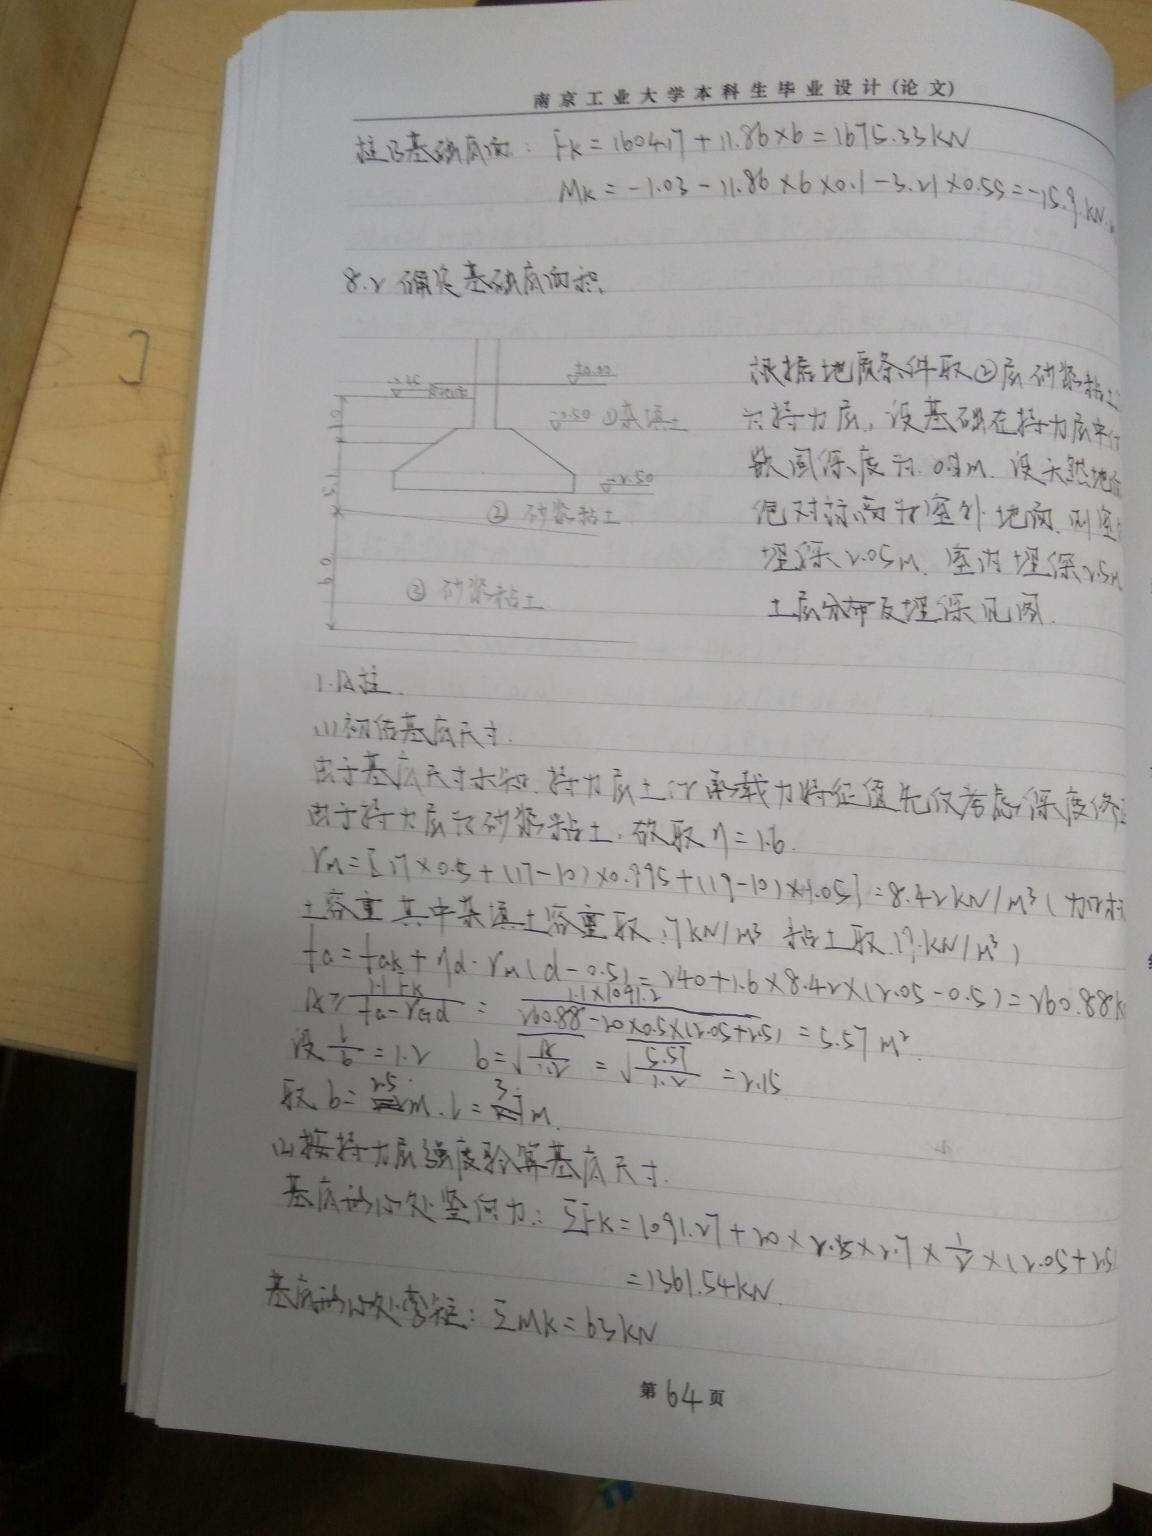 南京工业大学本科生毕业设计(论文)
柱B基础底面: Fk = 1604.17 + 11.86×6 = 1675.33KN
Mk = -1.03 - 11.86×6×0.1 - 3.21×0.55 = -15.9 KN.
8.2 确定基础底面积
根据地质条件取②层砂浆粘土
为持力层,设基础在持力层中
嵌固深度为 m. 设天然地
绝对标高为室外地面,则室
埋深2.05m. 室内埋深2.5m
土层分布及埋深见图.
±0.00
①杂填土
-2.50
② 砂浆粘土
③ 砂浆粘土
1.A柱.
(1)初估基底尺寸.
由于基底尺寸未知,持力层土的承载力特征值先仅考虑深度修
由于持力层为砂浆粘土,故取η=1.6.
γm = [17×0.5+(17-10)×0.995+(19-10)×1.05] = 8.42KN/m³ (
土容重 其中杂填土容重取17KN/m³ 粘土取19KN/m³)
fa = fak + ηd·γm(d-0.5) = 240+1.6×8.42×(2.05-0.5) = 260.88K
A ≥ 1.1Fk / fa-γGd = 1.1×1091.2 / 260.88-20×0.5×(2.05+2.5) = 5.57 m².
设 l/b = 1.2 b = √A/1.2 = √5.57/1.2 = 2.15
取 b = 2.5 m. l = 3 m.
(2)按持力层强度验算基底尺寸.
基底形心处竖向力: ΣFk = 1091.27 + 20× ×2.7×1/2×(2.05+2.5
= 1361.54KN.
基底形心处弯矩: ΣMk = 63KN
第 64 页